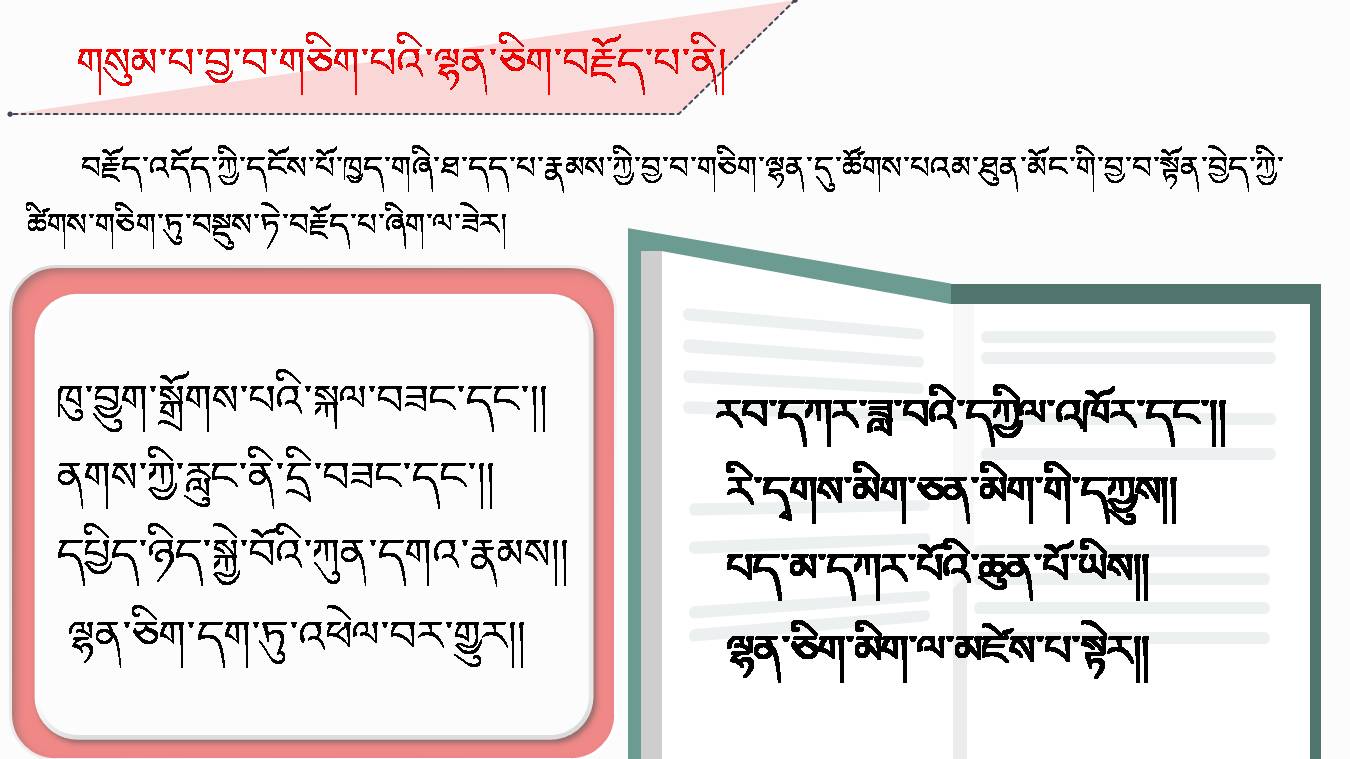 གསུམ་པ་བྱ་བ་གཅིག་པའི་ལྷན་ཅིག་བརྗོད་པ་ནི།
བརྗོད་འདོད་ཀྱི་དངོས་པོ་ཁྱད་གཞི་ཐ་དད་པ་རྣམས་ཀྱི་བྱ་བ་གཅིག་ལྷན་དུ་ཚོགས་པའམ་ཐུན་མོང་གི་བྱ་བ་སྟོན་བྱེད་ཀྱི་
ཚིགས་གཅིག་ཏུ་བསྡུས་ཏེ་བརྗོད་པ་ཞིག་ལ་ཟེར།
ཁུ་བྱུག་སྒྲོགས་པའི་སྐལ་བཟང་དང་།།
ནགས་ཀྱི་རླུང་ནི་དྲི་བཟང་དང་།།
དཔྱིད་ཉིད་སྐྱེ་བོའི་ཀུན་དགའ་རྣམས།།
ལྷན་ཅིག་དག་ཏུ་འཕེལ་བར་གྱུར།།
རབ་དཀར་ཟླ་བའི་དཀྱིལ་འཁོར་དང་།།
རི་དྭགས་མིག་ཅན་མིག་གི་དཀྱུས།།
པད་མ་དཀར་པོའི་ཆུན་པོ་ཡིས།།
ལྷན་ཅིག་མིག་ལ་མཛེས་པ་སྟེར།།